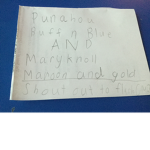 Punahou
Buff n Blue
AND
Maryknoll
Maroon and gold
Shout out to